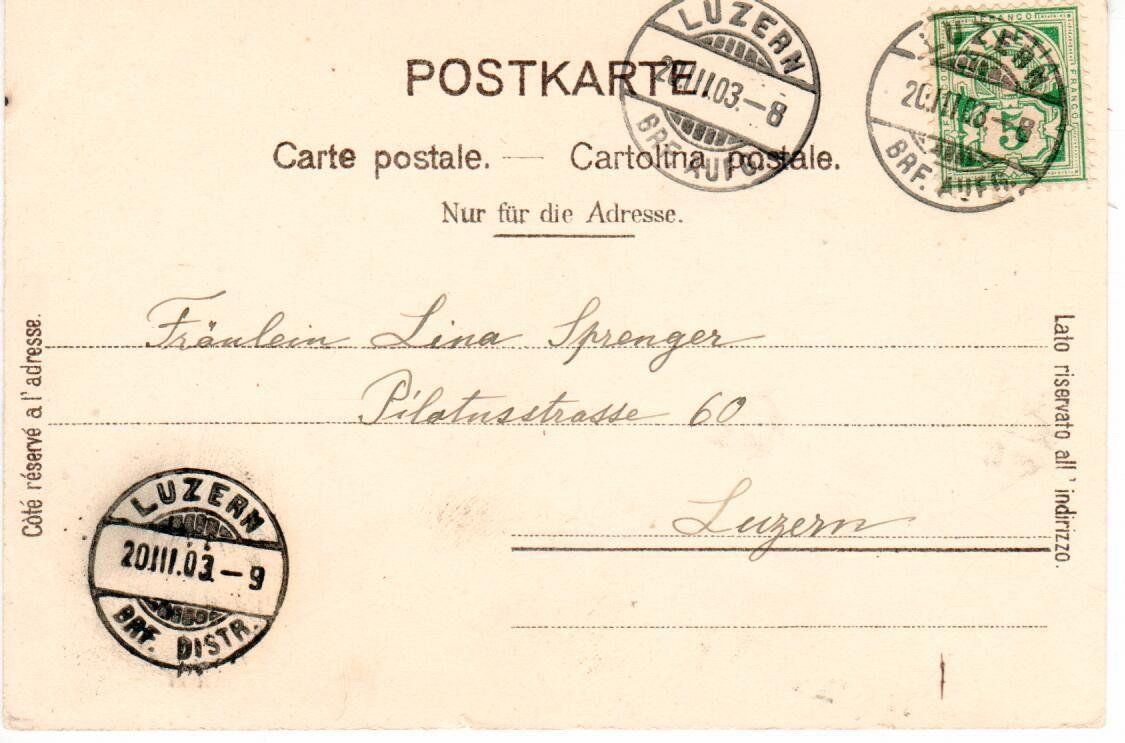 POSTKARTE
Carte postale. — Cartolina postale.
Nur für die Adresse.
LUZERN
20.III.03.–8
BRF. AUFG.
LUZERN
20.III.03–8
BRF. AUFG.
FRANCO
FRANCO
5
Côté réservé a l'adresse.
Lato riservato all' indirizzo.
Fräulein Lina Sprenger
Pilatusstrasse 60
Luzern
LUZERN
20.III.03.–9
BRF. DISTR.